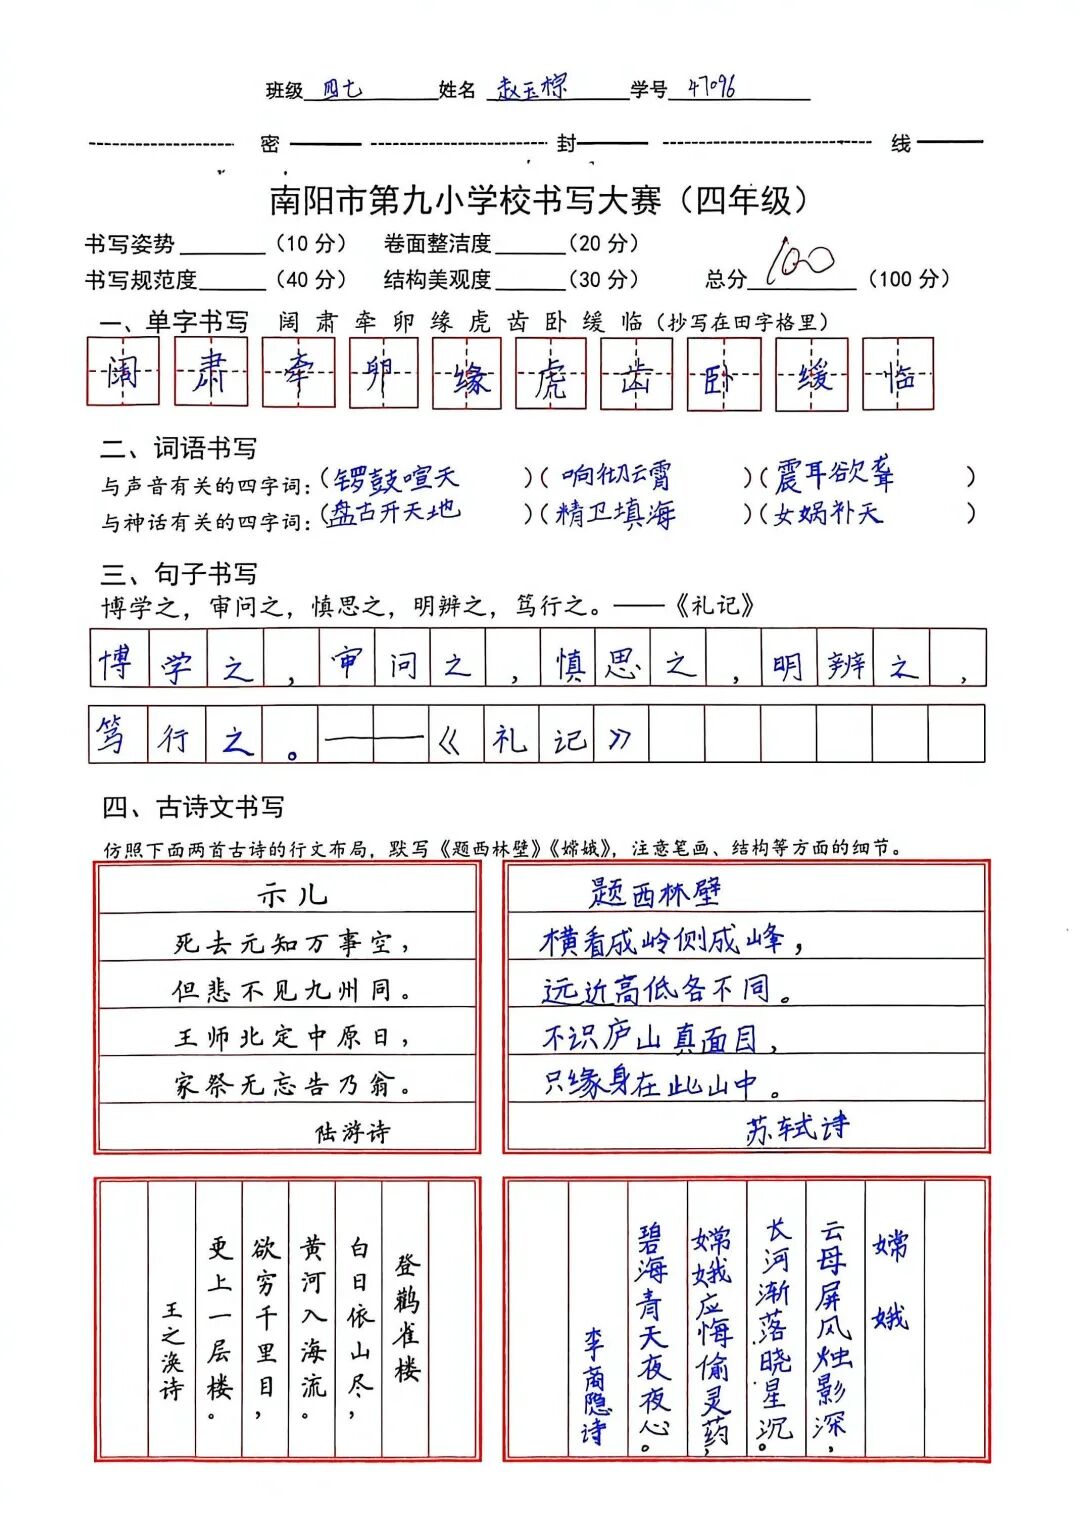 班级 四七 姓名 赵玉棕 学号 47096
密 封 线
南阳市第九小学校书写大赛（四年级）
书写姿势（10分） 卷面整洁度（20分）
书写规范度（40分） 结构美观度（30分） 总分 100（100分）
一、单字书写 阔 肃 牵 卵 缘 虎 齿 卧 缓 临（抄写在田字格里）
阔 肃 牵 卵 缘 虎 齿 卧 缓 临
二、词语书写
与声音有关的四字词：（锣鼓喧天）（响彻云霄）（震耳欲聋）
与神话有关的四字词：（盘古开天地）（精卫填海）（女娲补天）
三、句子书写
博学之，审问之，慎思之，明辨之，笃行之。——《礼记》
博学之，审问之，慎思之，明辨之，
笃行之。——《礼记》
四、古诗文书写
仿照下面两首古诗的行文布局，默写《题西林壁》《嫦娥》，注意笔画、结构等方面的细节。
示儿
死去元知万事空，
但悲不见九州同。
王师北定中原日，
家祭无忘告乃翁。
陆游诗
题西林壁
横看成岭侧成峰，
远近高低各不同。
不识庐山真面目，
只缘身在此山中。
苏轼诗
登鹳雀楼
白日依山尽，
黄河入海流。
欲穷千里目，
更上一层楼。
王之涣诗
嫦娥
云母屏风烛影深，
长河渐落晓星沉。
嫦娥应悔偷灵药，
碧海青天夜夜心。
李商隐诗